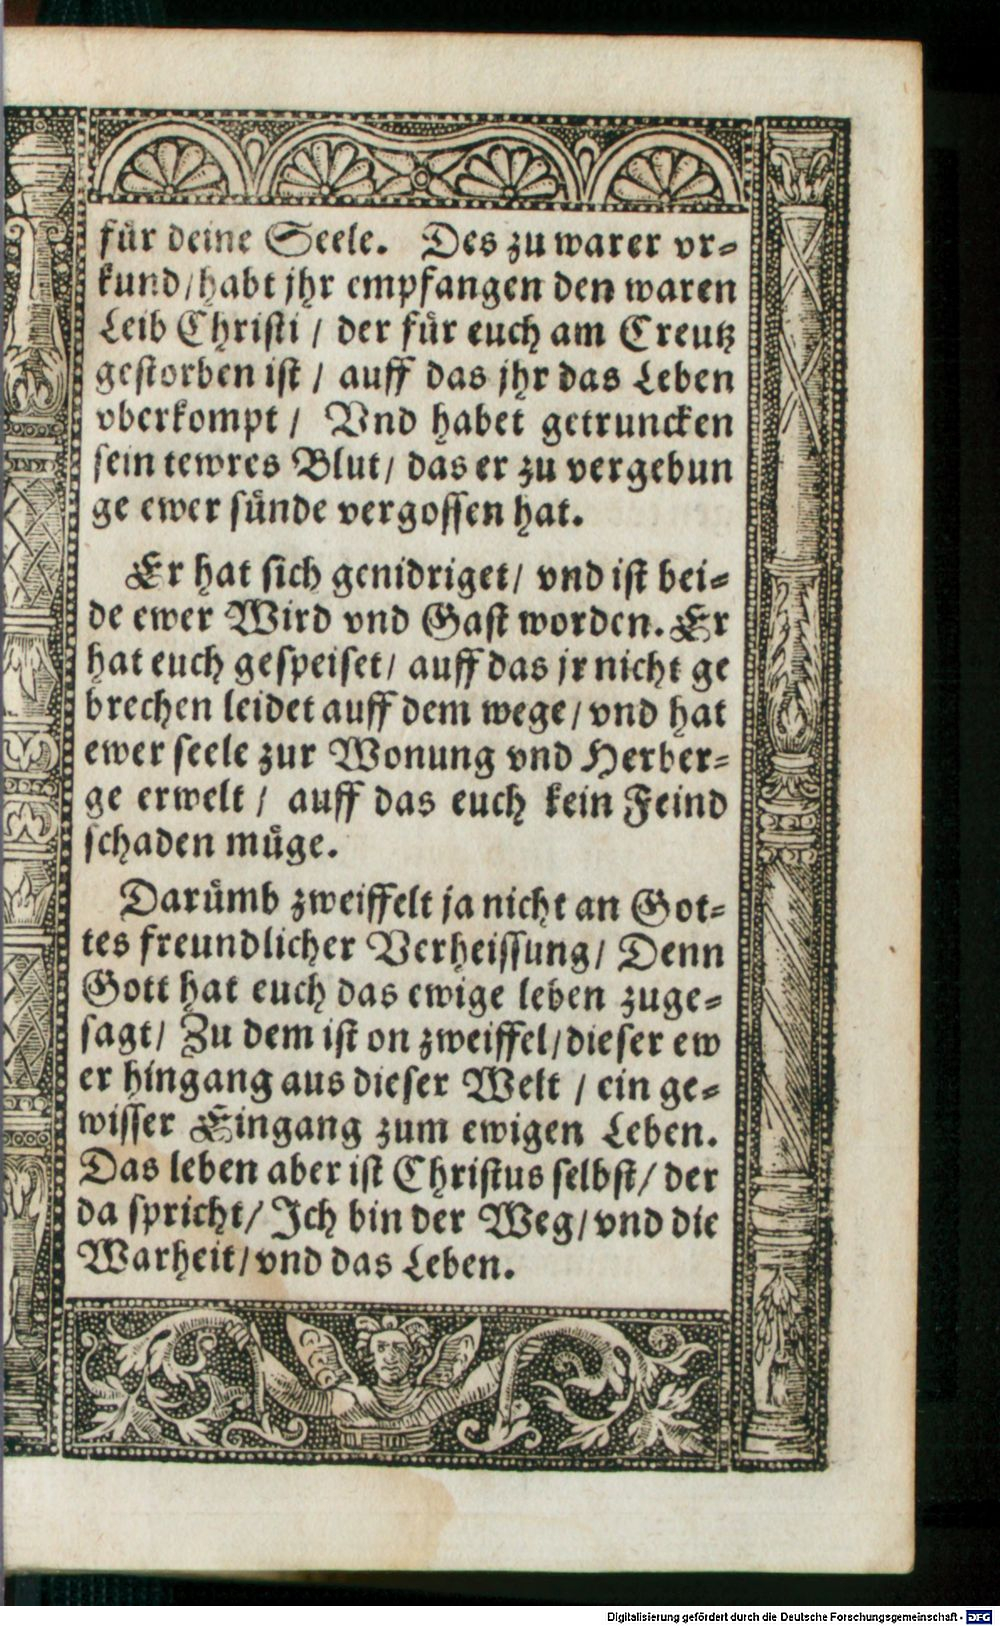 für deine Seele. Des zu warer vr-
kund/habt jhr empfangen den waren
Leib Christi / der für euch am Creutz
gestorben ist / auff das jhr das Leben
vberkompt / Vnd habet getruncken
sein tewres Blut/ das er zu vergebun
ge ewer sünde vergossen hat.
Er hat sich genidriget/ vnd ist bei-
de ewer Wird vnd Gast worden. Er
hat euch gespeiset/ auff das jr nicht ge
brechen leidet auff dem wege/ vnd hat
ewer seele zur Wonung vnd Herber-
ge erwelt / auff das euch kein Feind
schaden müge.
Darümb zweiffelt ja nicht an Got-
tes freundlicher Verheissung/ Denn
Gott hat euch das ewige leben zuge-
sagt/ Zu dem ist on zweiffel/dieser ew
er hingang aus dieser Welt / ein ge-
wisser Eingang zum ewigen Leben.
Das leben aber ist Christus selbst/ der
da spricht/ Ich bin der Weg/ vnd die
Warheit/ vnd das Leben.
Digitalisierung gefördert durch die Deutsche Forschungsgemeinschaft - DFG